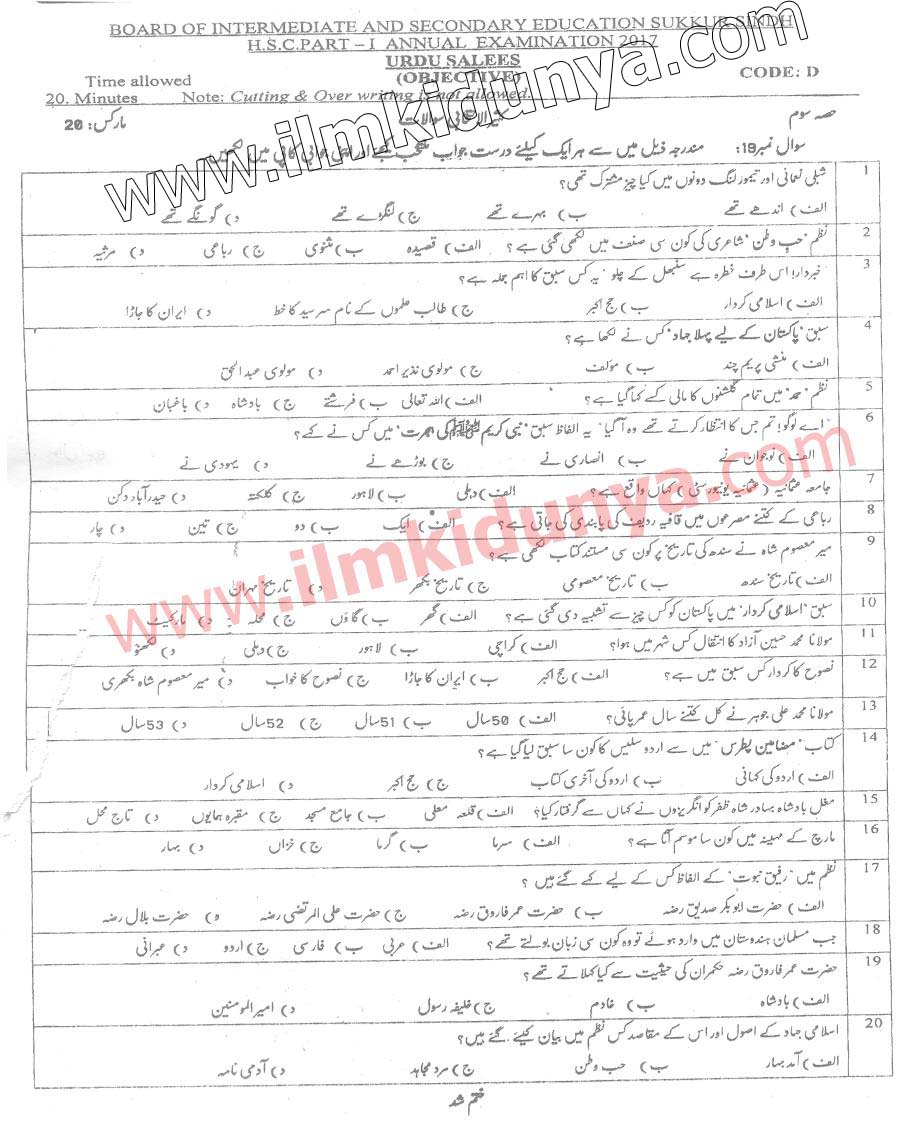 BOARD OF INTERMEDIATE AND SECONDARY EDUCATION SUKKUR SINDH
H.S.C.PART – I ANNUAL EXAMINATION 2017
URDU SALEES
(OBJECTIVE)
CODE: D
Time allowed
20. Minutes Note: Cutting & Over writing is not allowed.
حصہ سوم مارکس: 20
سوال نمبر19: مندرجہ ذیل میں سے ہر ایک کیلئے درست جواب منتخب کیجئے اور اپنی جوابی کاپی میں لکھیں
1 شبلی نعمانی اور تیمور لنگ دونوں میں کیا چیز مشترک تھی؟
الف) اندھے تھے ب) بہرے تھے ج) لنگڑے تھے د) گونگے تھے
2 نظم "حب وطن" شاعری کی کون سی صنف میں لکھی گئی ہے؟ الف) قصیدہ ب) مثنوی ج) رباعی د) مرثیہ
3 خبردار! اس طرف خطرہ ہے سنبھل کے چلو" یہ کس سبق کا اہم جملہ ہے؟
الف) اسلامی کردار ب) حج اکبر ج) طالب علموں کے نام سرسید کا خط د) ایران کا جاڑا
4 سبق "پاکستان کے لیے پہلا جہاد" کس نے لکھا ہے؟
الف) منشی پریم چند ب) مؤلف ج) مولوی نذیر احمد د) مولوی عبدالحق
5 نظم "حمد" میں تمام گلشنوں کا مالی کسے کہا گیا ہے؟ الف) اللہ تعالی ب) فرشتے ج) بادشاہ د) باغبان
6 "اے لوگو! تم جس کا انتظار کرتے تھے وہ آگیا" یہ الفاظ سبق "نبی کریم ﷺ کی ہجرت" میں کس نے کہے؟
الف) نوجوان نے ب) انصاری نے ج) بوڑھے نے د) یہودی نے
7 جامعہ عثمانیہ (عثمانیہ یونیورسٹی) کہاں واقع ہے؟ الف) دہلی ب) لاہور ج) کلکتہ د) حیدرآباد دکن
8 رباعی کے کتنے مصرعوں میں قافیہ ردیف کی پابندی کی جاتی ہے؟ الف) ایک ب) دو ج) تین د) چار
9 میر معصوم شاہ نے سندھ کی تاریخ پر کون سی مستند کتاب لکھی ہے؟
الف) تاریخ سندھ ب) تاریخ معصومی ج) تاریخ بکھر د) تاریخ مہران
10 سبق "اسلامی کردار" میں پاکستان کو کس چیز سے تشبیہ دی گئی ہے؟ الف) گھر ب) گاؤں ج) محلہ د) مارکیٹ
11 مولانا محمد حسین آزاد کا انتقال کس شہر میں ہوا؟ الف) کراچی ب) لاہور ج) دہلی د) لکھنؤ
12 نصوح کا کردار کس سبق میں ہے؟ الف) حج اکبر ب) ایران کا جاڑا ج) نصوح کا خواب د) میر معصوم شاہ بکھری
13 مولانا محمد علی جوہر نے کل کتنے سال عمر پائی؟ الف) 50سال ب) 51سال ج) 52سال د) 53سال
14 کتاب "مضامین پطرس" میں سے اردو سلیس کا کون سا سبق لیا گیا ہے؟
الف) اردو کی کہانی ب) اردو کی آخری کتاب ج) حج اکبر د) اسلامی کردار
15 مغل بادشاہ بہادر شاہ ظفر کو انگریزوں نے کہاں سے گرفتار کیا؟ الف) قلعہ معلی ب) جامع مسجد ج) مقبرہ ہمایوں د) تاج محل
16 مارچ کے مہینہ میں کون سا موسم آتا ہے؟ الف) سرما ب) گرما ج) خزاں د) بہار
17 نظم میں "رفیق نبوت" کے الفاظ کس کے لیے کہے گئے ہیں؟
الف) حضرت ابوبکر صدیق رضہ ب) حضرت عمر فاروق رضہ ج) حضرت علی المرتضی رضہ د) حضرت بلال رضہ
18 جب مسلمان ہندوستان میں وارد ہوئے تو وہ کون سی زبان بولتے تھے؟ الف) عربی ب) فارسی ج) اردو د) عبرانی
19 حضرت عمر فاروق رضہ حکمران کی حیثیت سے کیا کہلاتے تھے؟
الف) بادشاہ ب) خادم ج) خلیفہ رسول د) امیر المومنین
20 اسلامی جہاد کے اصول اور اس کے مقاصد کس نظم میں بیان کیئے گئے ہیں؟
الف) آمد بہار ب) حب وطن ج) مرد مجاہد د) آدمی نامہ
ختم شد
www.ilmkidunya.com
www.ilmkidunya.com